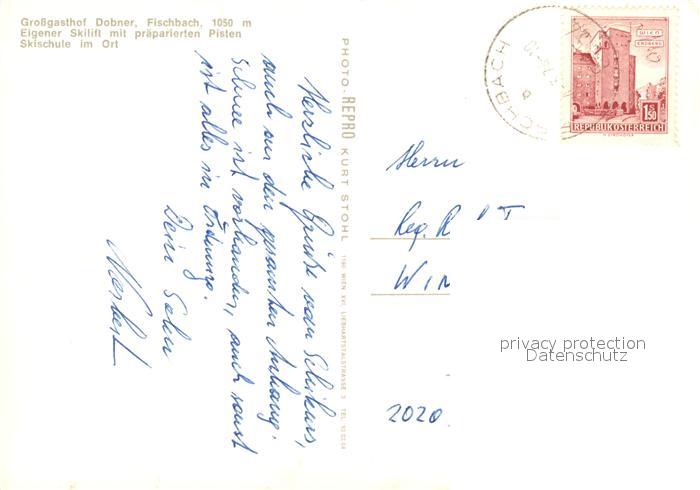 Großgasthof Dobner, Fischbach, 1050 m
Eigener Skilift mit präparierten Pisten
Skischule im Ort
PHOTO-REPRO KURT STOHL
1190 WIEN XVI, LIEBHARTSTALSTRASSE 3 TEL
Herzliche Grüße vom Schikurs,
auch an den gesamten Anhang.
Schnee ist vorhanden, auch sonst
ist alles in Ordnung.
Dein Sohn
Norbert
CHBACH
WIEN
ERDBERG
1.50
REPUBLIK ÖSTERREICH
Herrn
Reg. R
2020.
privacy protection
Datenschutz